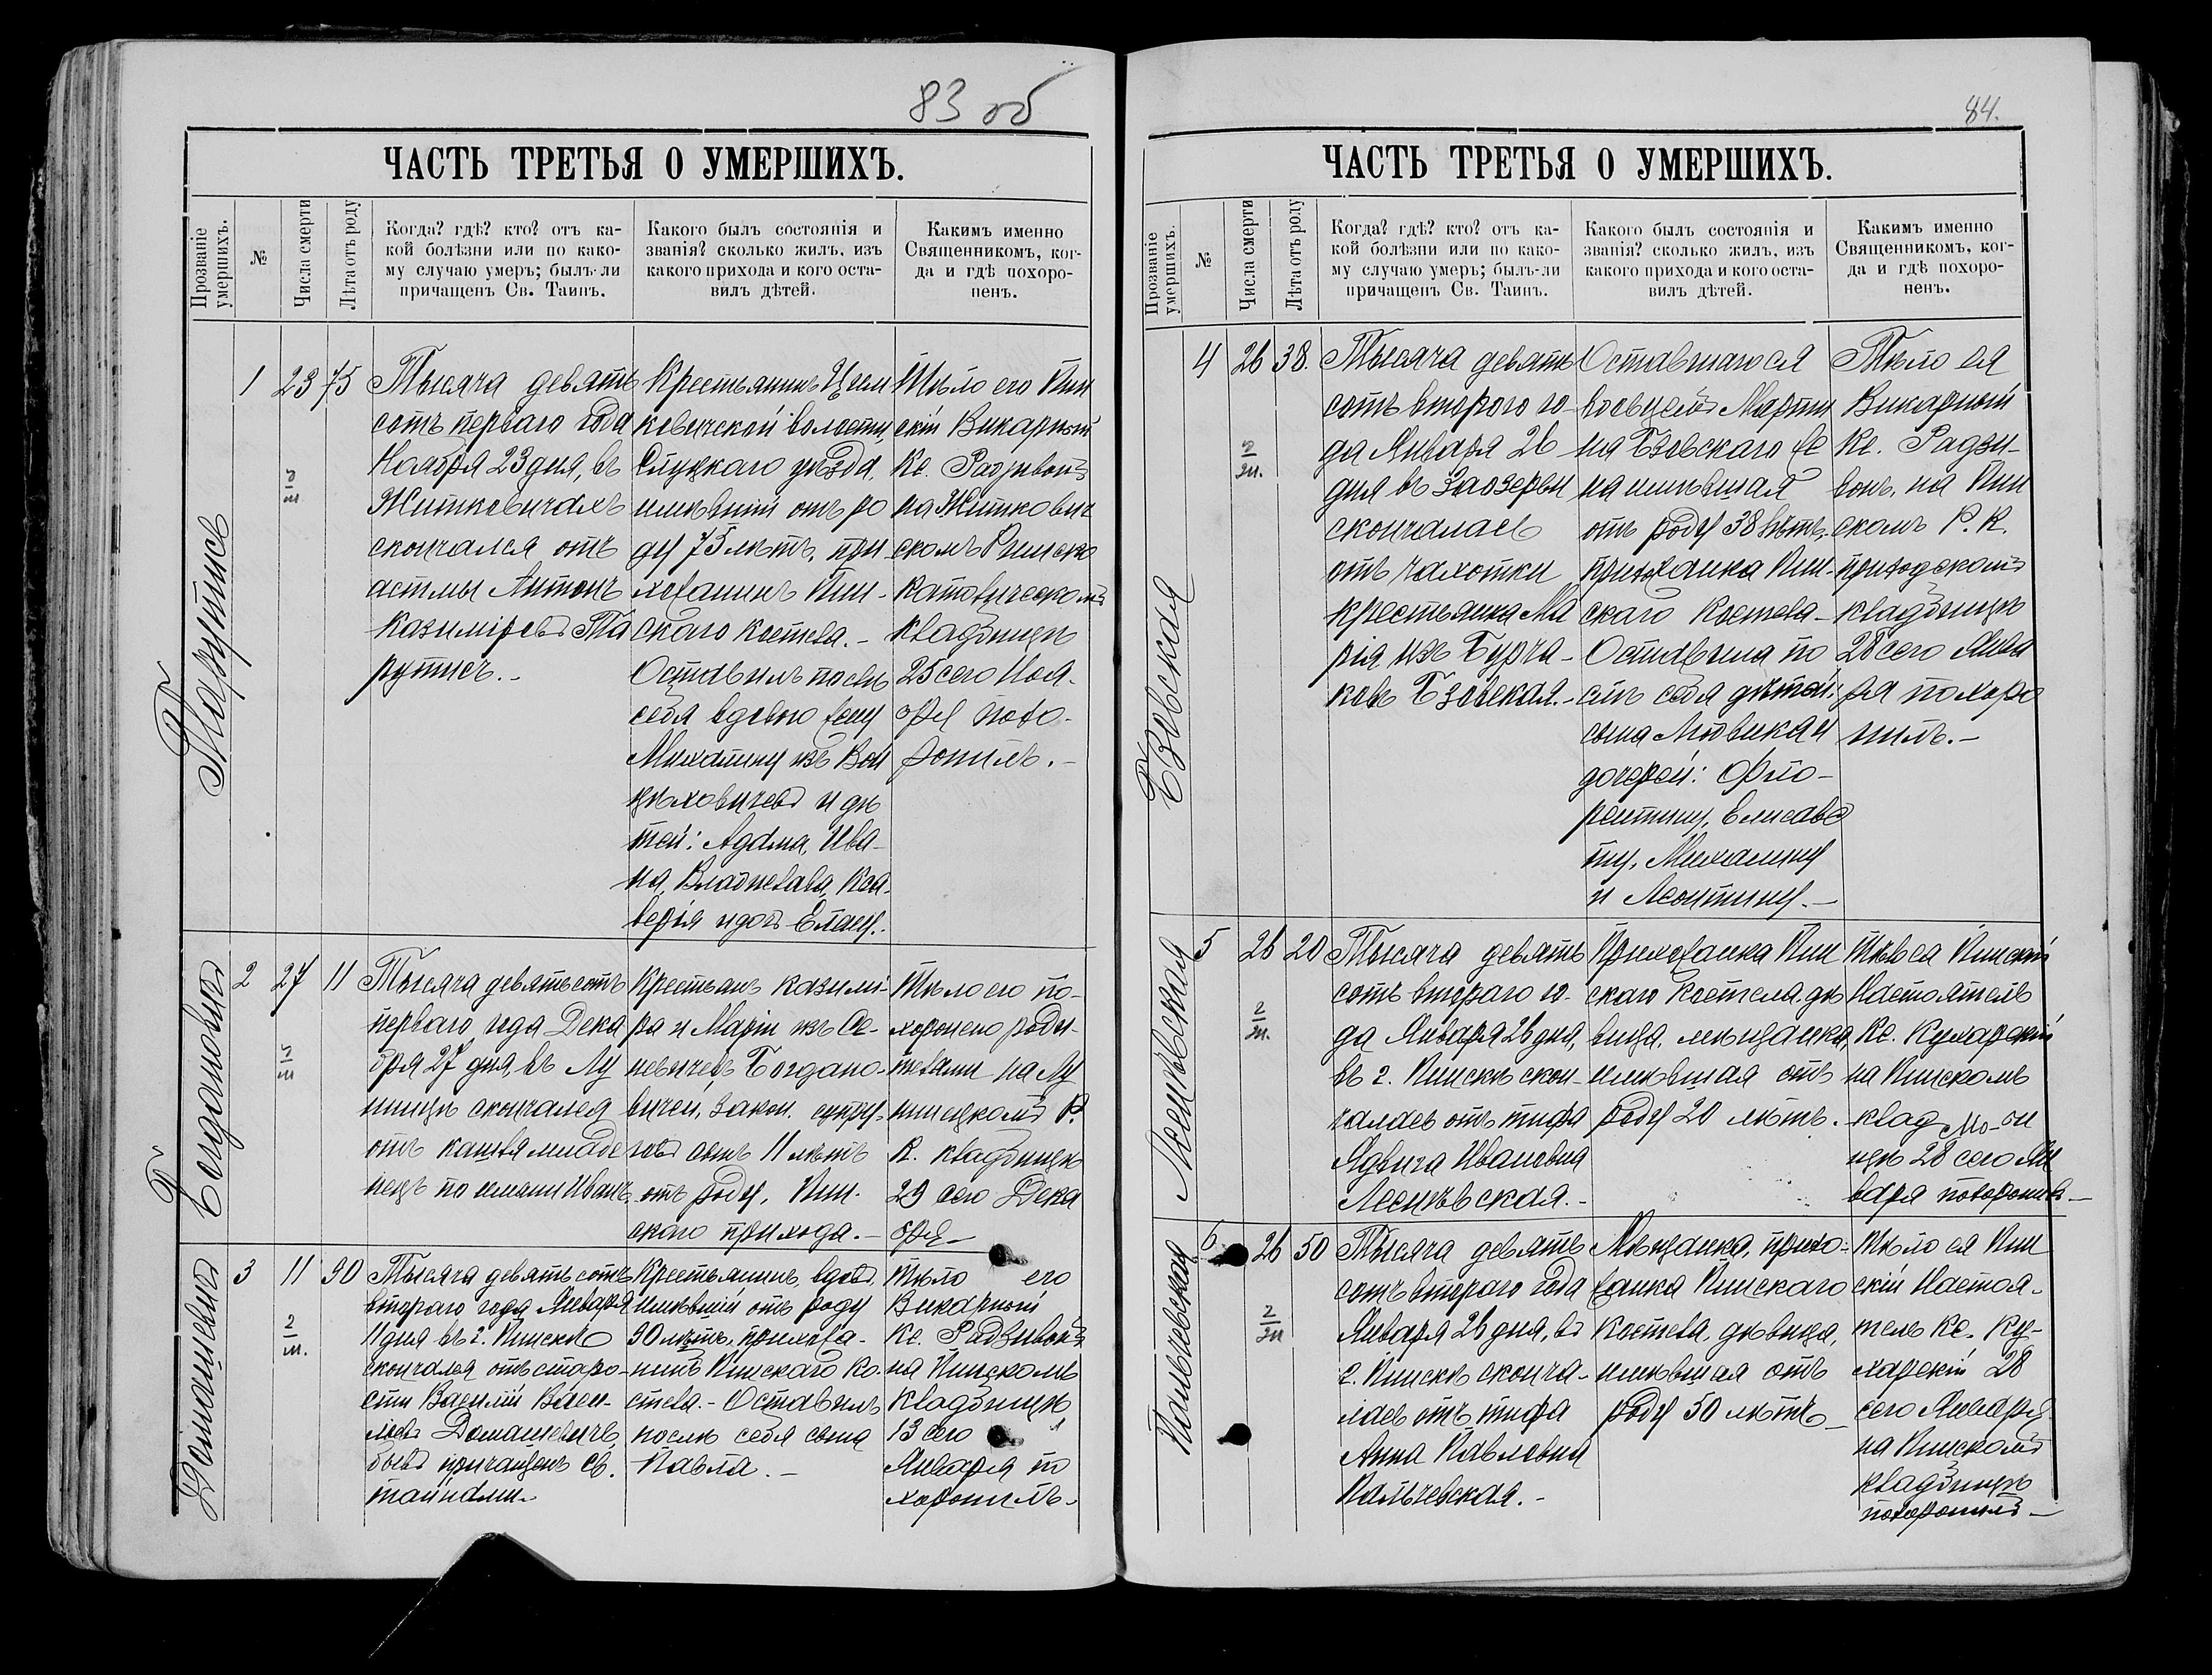 83 об
ЧАСТЬ ТРЕТЬЯ О УМЕРШИХЪ.
Прозваніе умершихъ.
№
Числа смерти
Лѣта отъ роду
Когда? гдѣ? кто? отъ ка-
кой болѣзни или по како-
му случаю умеръ; былъ-ли
причащенъ Св. Таинъ.
Какого былъ состоянія и
званія? сколько жилъ, изъ
какого прихода и кого оста-
вилъ дѣтей.
Какимъ именно
Священникомъ, ког-
да и гдѣ похоро-
ненъ.
1
23
75
Тысяча девять
сотъ перваго года
Ноября 23 дня, въ
Житковичахъ
скончался отъ
астмы Антонъ
Казиміровъ Та
рутись.-
Крестьянинъ
ковичской волости,
Слуцкаго уѣзда,
имѣвшій отъ ро
ду 75 лѣтъ, при
хожанинъ Пин-
скаго костела.-
Оставилъ послѣ
себя вдовою жену
Михалину изъ Вой
цѣховичевъ и дѣ
тей: Адама, Ива-
на, Владислава, Кса-
верія и дочь Елену.
Тѣло его Пин
скій Викарный
Кс. Радзивонъ
на Житкович
скомъ Римско
католическомъ
кладбищѣ
25 сего Ноя-
бря похо-
ронилъ.-
Богдановичъ
2
27
11
Тысяча девятьсотъ
перваго года Дека
бря 27 дня, въ Лу
нинцѣ скончался
отъ кашля младе
нецъ по имени Иванъ.
Крестьянъ Казимі-
ра и Маріи изъ
Богдано-
вичей, закон. супру-
говъ сынъ 11 лѣтъ
отъ роду, Пин-
скаго прихода.-
Тѣло его по-
хоронено роди-
телями на Лу
нинецкомъ Р.
К. кладбищѣ
29 сего Дека
бря-
Домашевичъ
3
11
90
Тысяча девятьсотъ
втораго года Января
11 дня въ г. Пинскѣ
скончался отъ старо-
сти Василій Васи-
льевъ Домашевичъ,
бывъ причащенъ Св.
тайнами.
Крестьянинъ, вдовъ,
имѣвшій отъ роду
90 лѣтъ, прихожа-
нинъ Пинскаго ко-
стела.- Оставилъ
послѣ себя сына
Павла.-
Тѣло его
Викарный
Кс. Радзивонъ
на Пинскомъ
кладбищѣ
13 сего
Января по
хоронилъ.
84.
ЧАСТЬ ТРЕТЬЯ О УМЕРШИХЪ.
Прозваніе умершихъ.
№
Числа смерти
Лѣта отъ роду
Когда? гдѣ? кто? отъ ка-
кой болѣзни или по како-
му случаю умеръ; былъ-ли
причащенъ Св. Таинъ.
Какого былъ состоянія и
званія? сколько жилъ, изъ
какого прихода и кого оста-
вилъ дѣтей.
Какимъ именно
Священникомъ, ког-
да и гдѣ похоро-
ненъ.
Бзовская
4
26
38.
Тысяча девять
сотъ второго го-
да Января 26
дня въ Заозерьи
скончалась
отъ чахотки
крестьянка Ма
рія изъ Бурча-
ковъ Бзовская.-
Оставшагося
вдовцемъ Марти
на Бзовскаго же
на имѣвшая
отъ роду 38 лѣтъ,
прихожанка Пин-
скаго костела-
Оставила по
слѣ себя дѣтей:
сына Людвика и
дочерей: Фло-
рентину, Елисаве
ту, Михалину
и Леонтину.-
Тѣло ея
Викарный
Кс. Радзи-
вонъ, на Пин
скомъ Р. К.
приходскомъ
кладбищѣ
28 сего Янва
ря похоро
нилъ.-
5
26
20
Тысяча девять
сотъ втораго го-
да Января 26 дня,
въ г. Пинскѣ скон-
чалась отъ тифа
Ядвига Ивановна
Прихожанка Пин
скаго костела, дѣ
вица, мѣщанка,
имѣвшая отъ
роду 20 лѣтъ.
Тѣло ея Пинскій
Настоятель
Кс. Кухарскій
на Пинскомъ
клад
щѣ 28 сего Ян
варя похоронилъ-
Пальчевская
6
26
50
Тысяча девять
сотъ втораго года
Января 26 дня, въ
г. Пинскѣ сконча-
лась отъ тифа
Анна Павловна
Пальчевская.-
Мѣщанка, прихо-
жанка Пинскаго
костела, дѣвица,
имѣвшая отъ
роду 50 лѣтъ-
Тѣло ея Пин
скій Настоя-
тель Кс. Ку-
харскій 28
сего Января
на Пинскомъ
кладбищѣ
похоронилъ-